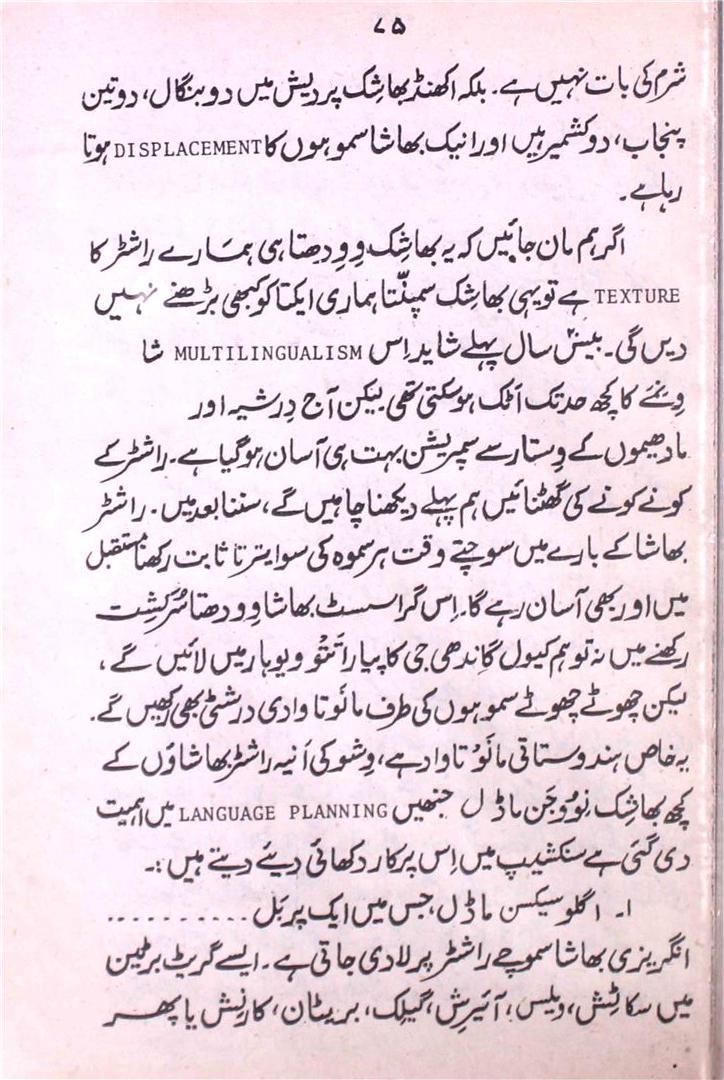 ۷۵
شرم کی بات نہیں ہے۔ بلکہ اکھنڈ بھاشک پردیش میں دو بنگال، دو تین
پنجاب، دو کشمیر ہیں اور انیک بھاشا سموہوں کا DISPLACEMENT ہوتا
رہا ہے۔
اگر ہم مان جائیں کہ یہ بھاشِک وِوِدھتا ہی ہمارے راشٹر کا
TEXTURE ہے تو یہی بھاشِک سمپنّتا ہماری ایکتا کو کبھی بڑھنے نہیں
دیں گی۔ بیس سال پہلے شاید اِس MULTILINGUALISM شا
وِنٹے کا کچھ حد تک اٹک ہو سکتی تھی لیکن آج دِرشیہ اور
مادھیموں کے وِستار سے سمپریشن بہت ہی آسان ہو گیا ہے۔ راشٹر کے
کونے کونے کی گھٹنائیں ہم پہلے دیکھنا چاہیں گے، سننا بعد میں۔ راشٹر
بھاشا کے بارے میں سوچتے وقت ہر سموہ کی سوایترتا ثابت رکھنا مستقبل
میں اور بھی آسان رہے گا۔ اِس گراسسٹ بھاشا وِودھتا سُرکشِت
رکھنے میں نہ تو ہم کیول گاندھی جی کا پیارا تَتْو ویوہار میں لائیں گے،
لیکن چھوٹے چھوٹے سموہوں کی طرف مانَوتا وادی درشٹی بھی رکھیں گے۔
یہ خاص ہندوستانی مانَوتاواد ہے، وِشو کی اَنیہ راشٹر بھاشاؤں کے
کچھ بھاشِک نیوجَن ماڈل جنھیں LANGUAGE PLANNING میں اہمیت
دی گئی ہے سنکشیپ میں اِس پرکار دکھائی دیئے دیتے ہیں :۔
۱۔ انگلو سیکسن ماڈل، جس میں ایک پربَل ..........
انگریزی بھاشا سموچے راشٹر پر لادی جاتی ہے۔ ایسے گریٹ برٹین
میں سکاٹِش، ویلس، آئیرِش، گیلِک، بریٹان، کارنِش یا پھر